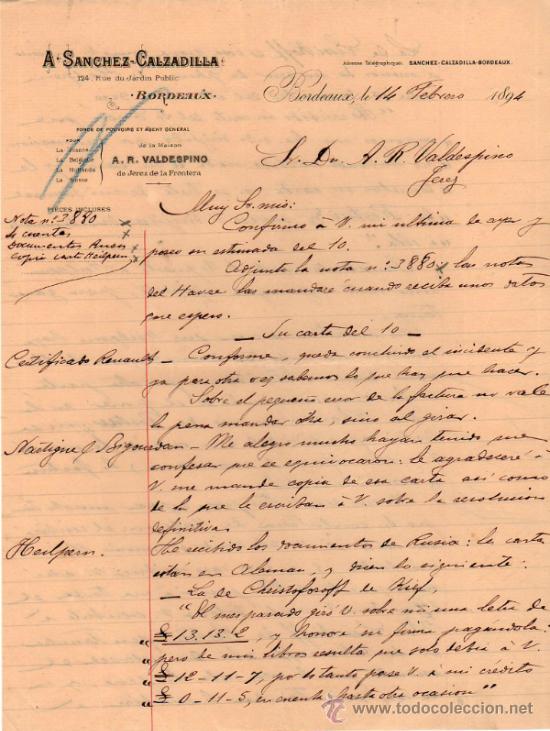 A. SANCHEZ-CALZADILLA
124, Rue du Jardin Public
BORDEAUX
Adresse Télégraphique: SANCHEZ-CALZADILLA-BORDEAUX.
Bordeaux, le 14 Febrero 1894
FONDÉ DE POUVOIRS ET AGENT GÉNÉRAL
POUR
La France
La Belgique
La Hollande
La Suisse
de la Maison
A. R. VALDESPINO
de Jerez de la Frontera
Sr. Dn. A. R. Valdespino
Jerez
PIÈCES INCLUSES
Nota n.º 3880
de cuenta
Documentos Rusos
Copia carta Heilpern
Muy Sr. mio:
Confirmo à V. mi ultima de ayer y
poseo su estimada del 10.
Adjunto la nota n.º 3880; las notas
del Havre las mandaré cuando reciba unos datos
que espero.
— Su carta del 10 —
Certificado Renault — Conforme, queda concluido el incidente y
ya para otra vez sabemos lo que hay que hacer.
Sobre el pequeño error de la factura no vale
la pena mandar otra, sino al girar.
Nartigue & Bigourdan — Me alegro mucho hayan tenido que
confesar que se equivocaron: le agradeceré à
V. me mande copia de esa carta asi como
de la que le escriban à V. sobre la resolucion
definitiva.
Heilpern. He recibido los documentos de Rusia: la carta
están en Aleman, y dicen lo siguiente:
— La de Christoforoff de Kief,
"El mes pasado giró V. sobre mi una letra de
" £ 13.13.2, y honoré mi firma pagándola:
" pero de mis libros resulta que solo debia à V.
" £ 12-11-7, por lo tanto pase V. à mi crédito
" £ 0-11-5, en cuenta, hasta otra ocasion"
todocoleccion
todocoleccion.net